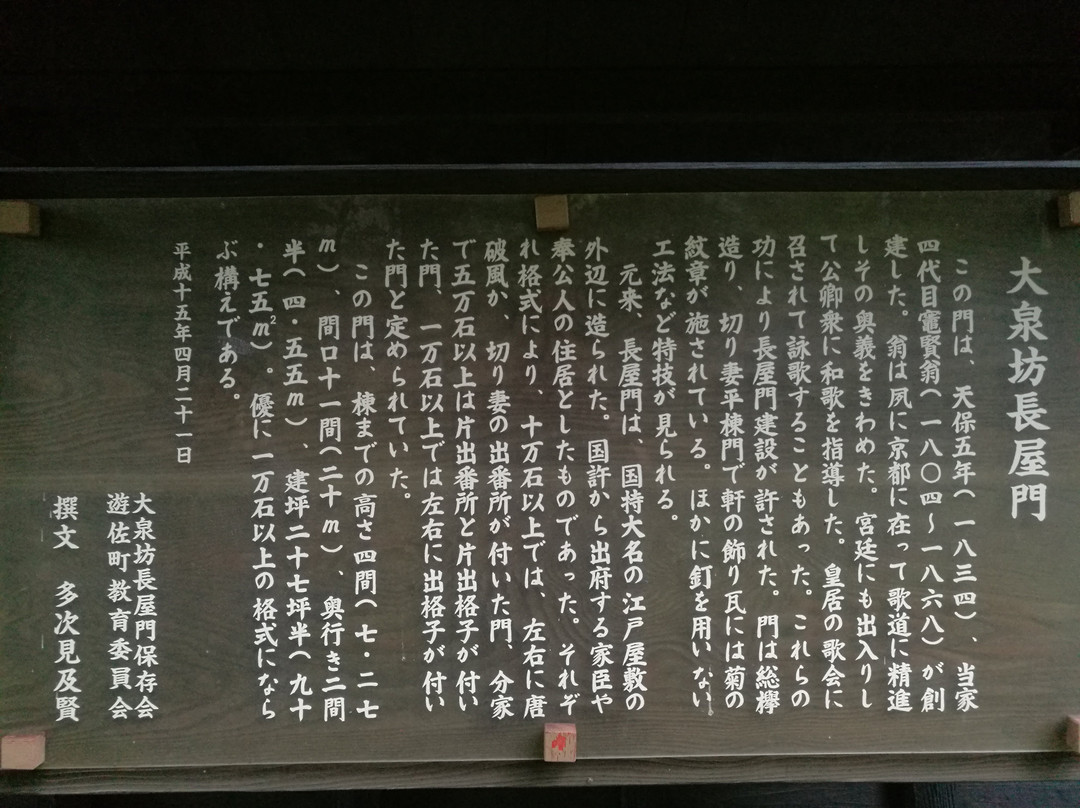 大泉坊長屋門
この門は、天保五年(一八三四)、当家
四代目竈賢翁(一八〇四〜一八六八)が創
建した。翁は夙に京都に在って歌道に精進
しその奥義をきわめた。宮廷にも出入りし
て公卿衆に和歌を指導した。皇居の歌会に
召されて詠歌することもあった。これらの
功により長屋門建設が許された。門は総欅
造り、切り妻平棟門で軒の飾り瓦には菊の
紋章が施されている。ほかに釘を用いない
工法など特技が見られる。
元来、長屋門は、国持大名の江戸屋敷の
外辺に造られた。国許から出府する家臣や
奉公人の住居としたものであった。それぞ
れ格式により、十万石以上では、左右に唐
破風か、切り妻の出番所が付いた門、分家
で五万石以上は片出番所と片出格子が付い
た門、一万石以上では左右に出格子が付い
た門と定められていた。
この門は、棟までの高さ四間(七・二七
m)、間口十一間(二十m)、奥行き二間
半(四・五五m)、建坪二十七坪半(九十
・七五㎡)。優に一万石以上の格式になら
ぶ構えである。
平成十五年四月二十一日
大泉坊長屋門保存会
遊佐町教育委員会
撰文 多次見及賢